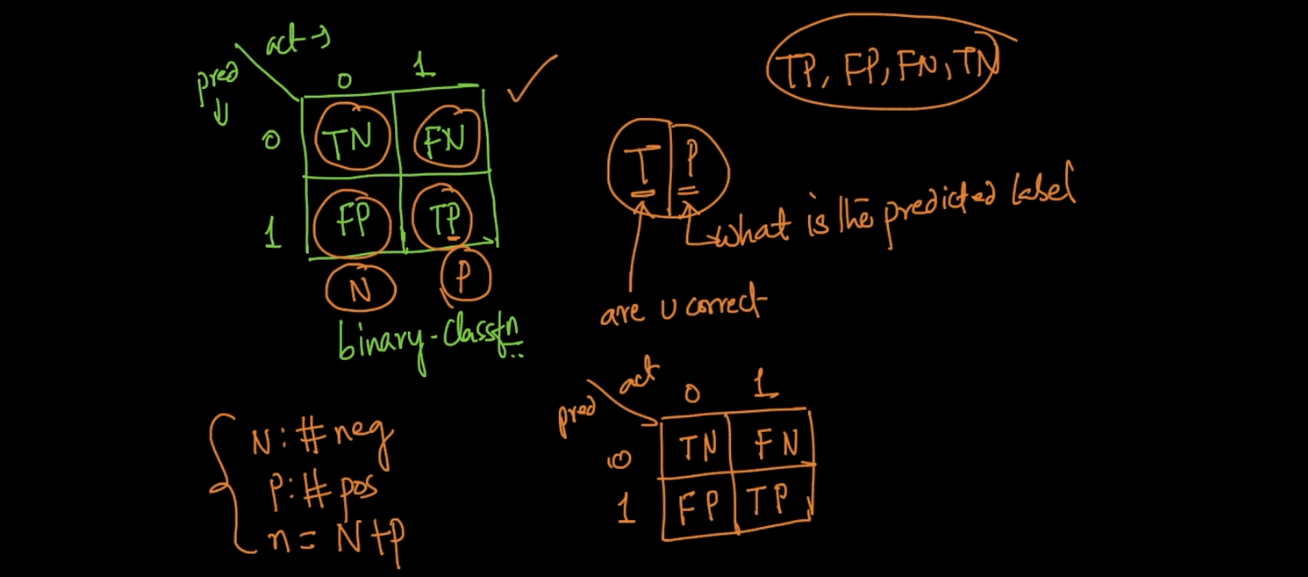 act →
pred ↓
0 1
0 TN FN
1 FP TP
N P
binary-classfn
TP, FP, FN, TN
T P
what is the predicted label
are u correct
N: # neg
P: # pos
n = N+P
act
pred
0 1
0 TN FN
1 FP TP